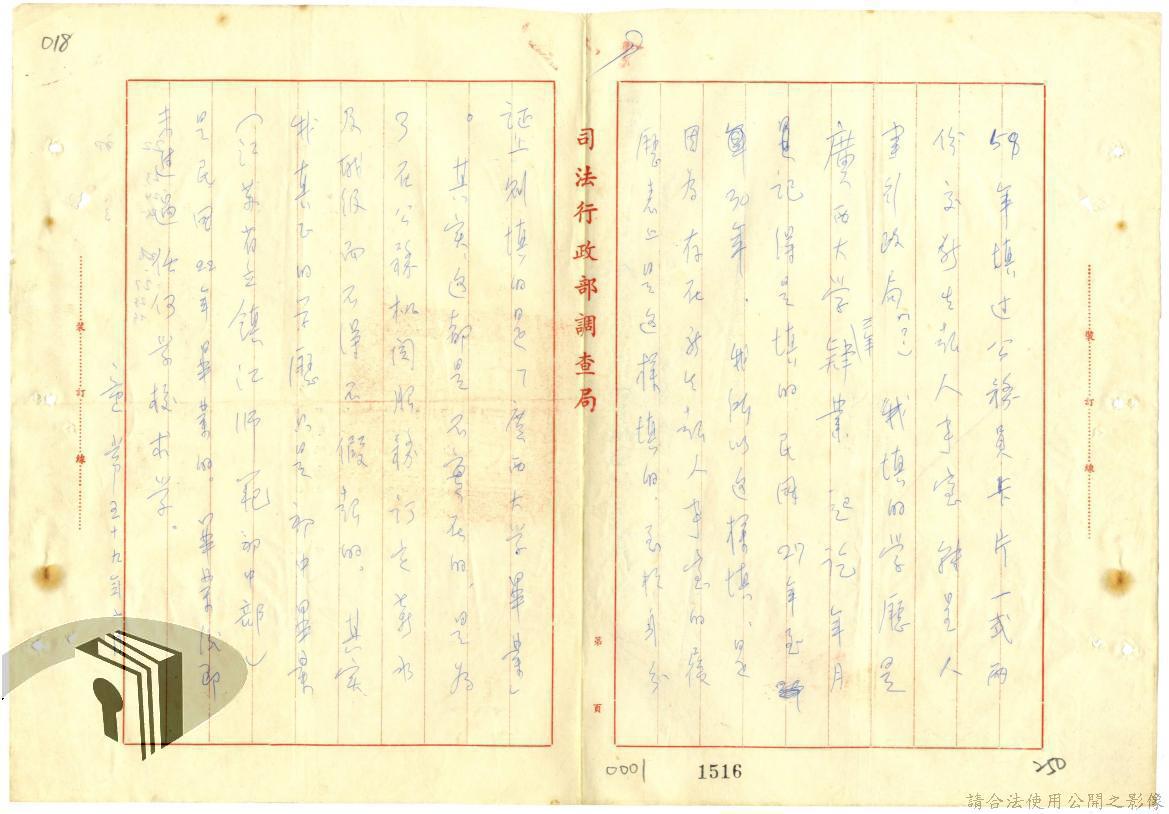 018
58年填过公務員卡片一式两
份交新生報人事室轉呈人
事行政局的，我填的学歷是
廣西大学肄業（三年）起讫年月
是記得是填的民國27年至
30年。我所以这樣填，是
因为存在新生報人事室的履
歷表上是这樣填的，至於身分
司法行政部調查局
証上則填的是「广西大学畢業」
。其实，这都是不实在的，是为
了在公務机関服務訂定薪水
及職级而不得不假報的。其实
我真正的学歷只是初中畢業
（江蘇省立鎮江师範初中部）
是民國22年畢業的。畢業後即
未進過任何学校求学。
五十九年
裝
訂
線
裝
訂
線
第
頁
0001
1516
250
請合法使用公開之影像